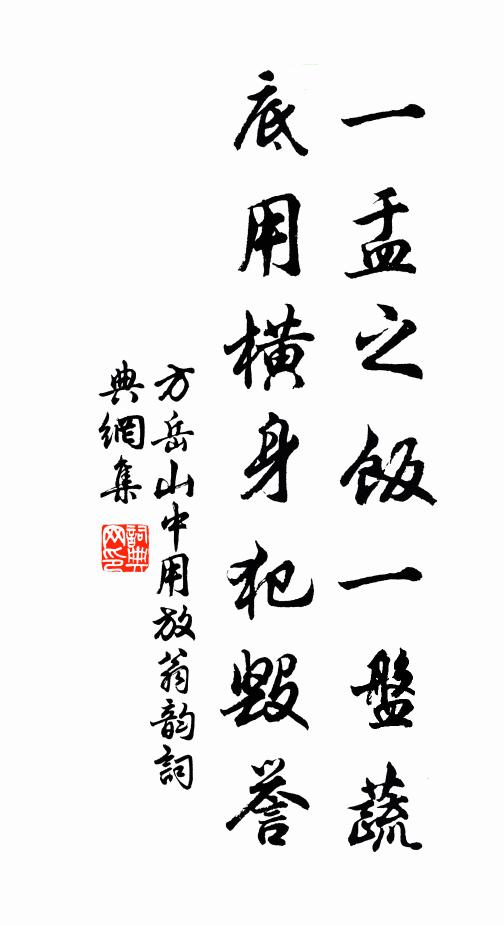 一盂之飯一盤蔬
底用橫身犯毀譽
方岳山中用放翁韵詞
典網集
詞典
网印